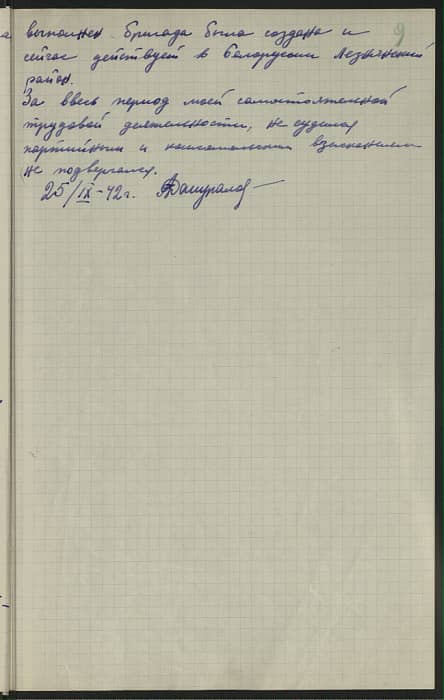 9
выполнен. Бригада была создана и
сейчас действует в Белоруссии Лезнянский
район.
За ввесь период моей самостоятельной
трудовой деятельности, не судился
партийным и комсомольским взысканиям
не подвергался.
25/IX-42г.